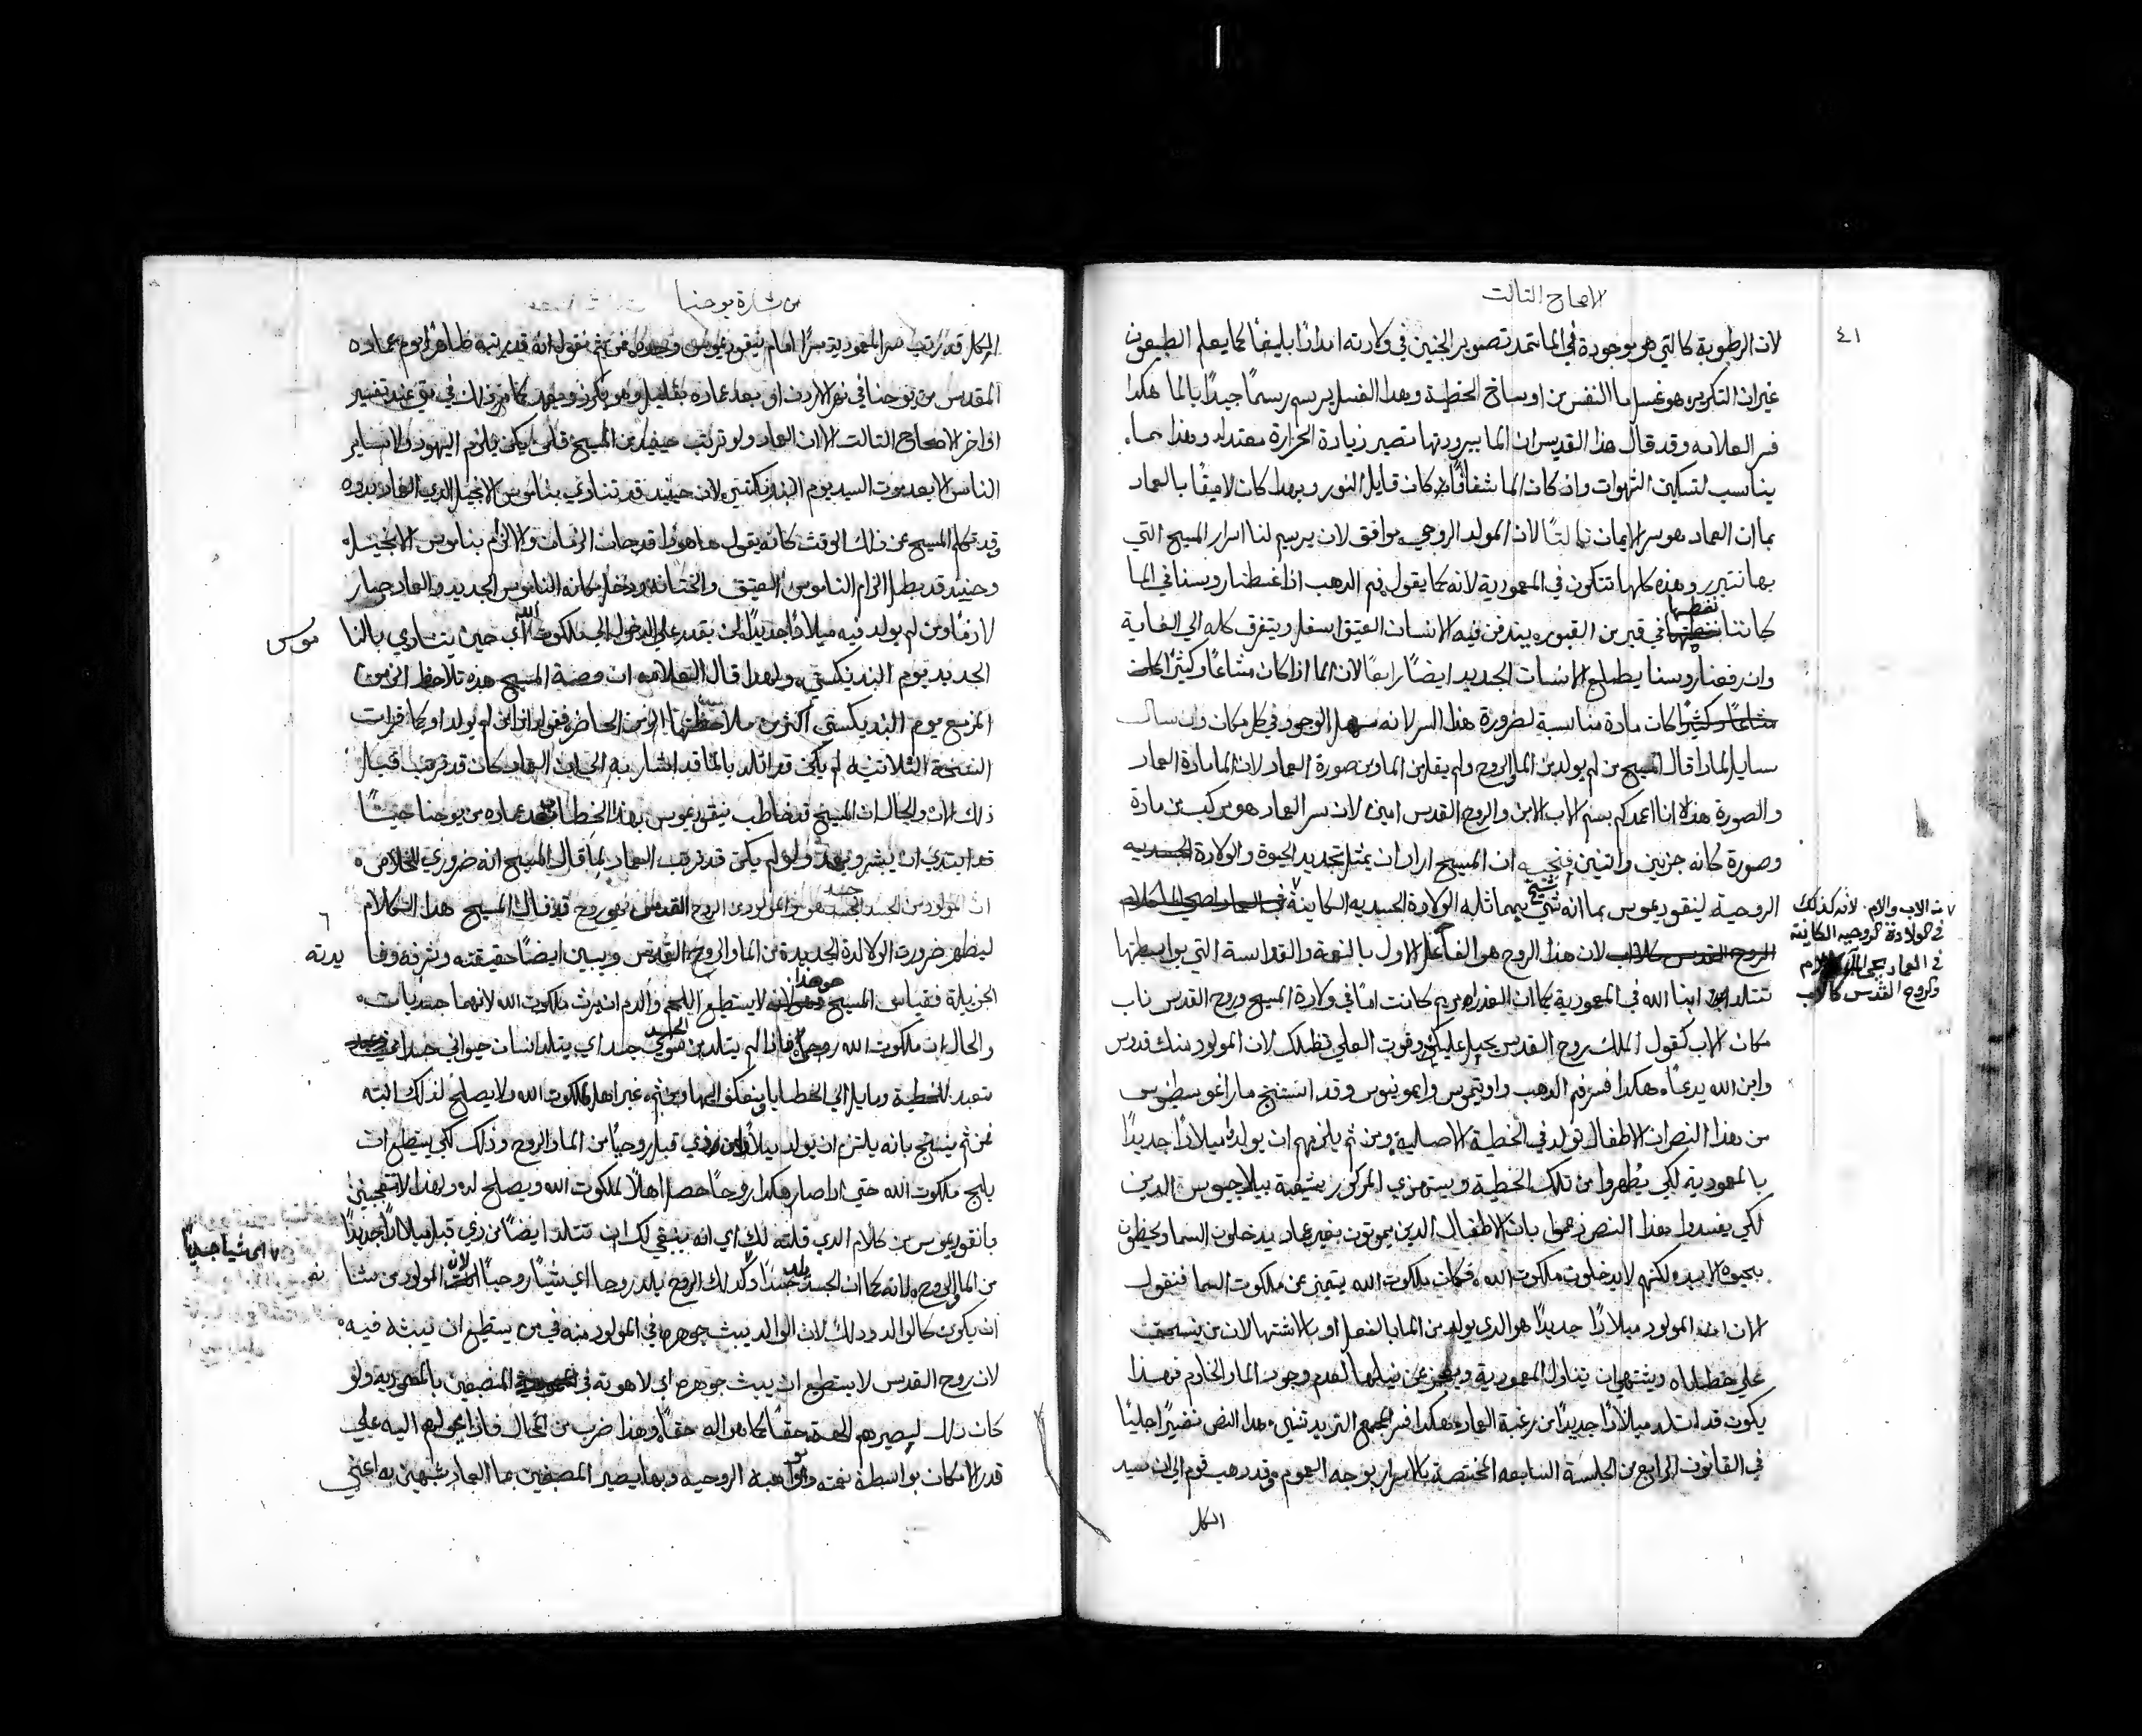 الاصحاح التالت
٤١
لان الرطوبة كالتي هو موجودة في الما تمد تصوير الجنين في ولادته امدادًا بليغًا كما يعلم الطبيعيون
غير ان التكريم هو غسل ما النفس من اوساخ الخطية وهدا الغسل يرسم رسمًا جيدًا بالما هكدا
فسر العلامه وقد قال هذا القديس ان الما ببرودتها تصير زيادة الحرارة معتدله وهذا مما
يناسب لتسكين الشهوات وان كان الما شفافًا كان قابل النور وبهدا كان لايقًا بالعماد
بما ان العماد هو سر الايمان ثالتًا لان المولد الروحي موافق لان يرسم لنا اسرار المسيح التي
بها نتبرر وهذه كلها تتكون في المعمودية لانه كما يقول فم الدهب اذا غطسنا روسنا في الما
كاننا نغطسها في قبر من القبور يندفن فيه الانسان العتيق اسفل ويتغرق كله الي الغاية
وان رفعنا روسنا يطلع الانسان الجديد ايضًا رابعًا لان الما اذا كان مشاعًا وكثيرًا
كان مادة مناسبة لضرورة هذا السر لانه سهل الوجود في كل مكان وان سال
سايل لمادا قال المسيح من لم يولد من الما والروح ولم يقل من الما ومن صورة العماد لان الما مادة العماد
والصورة هذه انا اعمدكم بسم الاب والابن والروح القدس امين لان سر العماد هو مركب من مادة
وصورة كانه جزين واتنين فنجيبه ان المسيح اراد ان يمثل تجديد الحيوة والولادة الجسديه
الروحية لنيقوديموس بما انه شيخ بمماتلة الولادة الجسديه الكاينة
من الاب والام لانه كذلك
في الولادة الروحيه الكاينة
في العماد
والروح القدس كالاب
لان هذا الروح هو الفاعل الاول بالنعمة والقداسة التي بواسطتها
تتلد ابنا الله في المعمودية كما ان العذرا مريم كانت امًا في ولادة المسيح وروح القدس ناب
مكان الاب كقول الملاك روح القدس يحل عليك وقوت العلي تظللك لان المولود منك قدوس
وابن الله يدعا هكدا فسر فم الدهب واوتيموس وامونيوس وقد استنتج مار اغوسطينوس
من هذا النص ان الاطفال تولد في الخطية الاصلية ومن ثم يلزمهم ان يولدوا ميلادًا جديدًا
بالمعمودية لكي يُطهروا من تلك الخطية ويستهزي المذكور بشيعة بيلاجيوس الدين
لكي يفسدوا هذا النص زعموا بان الاطفال الدين يموتون بغير عماد يدخلون السما ويحظون
بحيوة الابد ولكنهم لا يدخلون ملكوت الله فكان ملكوت الله يتميز عن ملكوت السما فنقول
الان ان المولود ميلادًا جديدًا هو الدي يولد من الما بالفعل او بالاشتها لان من ينسحق
علي خطاياه ويشتهي ان يتناول المعمودية ويعجز عن نيلها لعدم وجود الما والخادم فهدا
يكون قد اتلد ميلادًا جديدًا من رغبة العماد هكدا فسر المجمع التريدنتيني هدا النص تفسيرًا جليًا
في القانون الرابع من الجلسة السابعه المختصة بالاسرار بوجه العموم وقد دهب قوم الي ان سيد
الكل
من بشارة يوحنا
الكل قد رتب سر المعمودية سرًا امام نيقوديموس وحده فمن ثم نقول انه قد رتبه ظاهرًا يوم عماده
المقدس من يوحنا في نهر الاردن او بعد عماده بقليل وهو يكرز ويعمد كما
اواخر الاصحاح التالت الا ان العماد ولو ترتب حينيد من المسيح فلم يكن يلزم اليهود ولا ساير
الناس الا بعد موت السيد يوم البنديكستي لان حينيد قد تنادي بناموس الانجيل الدي العماد بدوه
وقد تكلم المسيح عن ذلك الوقت كانه يقول ها هوذا قد حان الزمان والالزام بناموس الانجيل
وحينيد قد بطل الزام الناموس العتيق والختانه ودخل مكانه الناموس الجديد والعماد وصار
لازمًا ومن لم يولد فيه ميلادًا جديدًا لن يقدر علي الدخول الي ملكوت الله اي حين يتنادي بالنا
موس
الجديد يوم البنديكستي ولهدا قال العلامه ان وصية المسيح هذه تلاحظ الزمن
المزمع يوم البنديكستي اكثر من ملاحظتها الزمن الحاضر
النسخة اللاتنية لم يكن قد اتلد بالما قد اشار به الي ان العماد كان قد ترتب قبل
ذلك الان والحال ان المسيح قد خاطب نيقوديموس بهذا الخطاب بعد عماده من يوحنا حيث
قد ابتدي ان يبشر ويعمد ولو لم يكن قد ترتب العماد لما قال المسيح انه ضروري للخلاص
ان المولود من الجسد جسد هو والمولود من الروح القدس فهو روح قد قال المسيح هذا الكلام
٦
ليظهر ضرورت الولادة الجديدة من الما والروح القدس ويبين ايضًا حقيقته وشرفه وفا
يدته
الجزيلة فقياس المسيح هو هدا لا يستطيع اللحم والدم ان يرث ملكوت الله لانهما جسديات
والحال ان ملكوت الله روحي فاذا لم يتلد من الجسد سوي جسد اي يتلد انسان حيواني جسداني
متعبد للخطية ومايل الي الخطايا وينعكف اليها ومن ثم غير اهل لملكوت الله ولا يصلح لذلك البته
فمن ثم ينتج بانه يلتزم ان يولد ميلادًا من ذي قبل روحيًا من الما والروح وذلك لكي يستطيع ان
يلج ملكوت الله حتي اذا صار هكدا روحًا حصل اهلاً لملكوت الله ويصلح له ولهذا لا تتعجبن
يا نقوديموس من كلام الدي قلته لك اي انه ينبغي لك ان تتلد ايضًا من ذي قبل ميلادًا جديدًا
من الما والروح لانه كما ان الجسد يلد جسدًا وكدلك الروح يلد روحا اي شيًا روحيًا لان المولود من شانا
اي شيا جسديًا
ان يكون كالوالد وذلك لان الوالد يبث جوهره في المولود منه في من يستطيع ان يبثه فيه
لان روح القدس لا يستطيع ان يبث جوهره اي لاهوته في المنصبغين بالمعموديه ولو
كان ذلك ليصيرهم الهة حقًا كما هو اله حقًا وهذا ضرب من المحال فاذًا يحولهم اليه علي
قدر الامكان بواسطة نعمته ومواهبه الروحيه وبها يصير المصبغين بما العماد شبهين به اعني